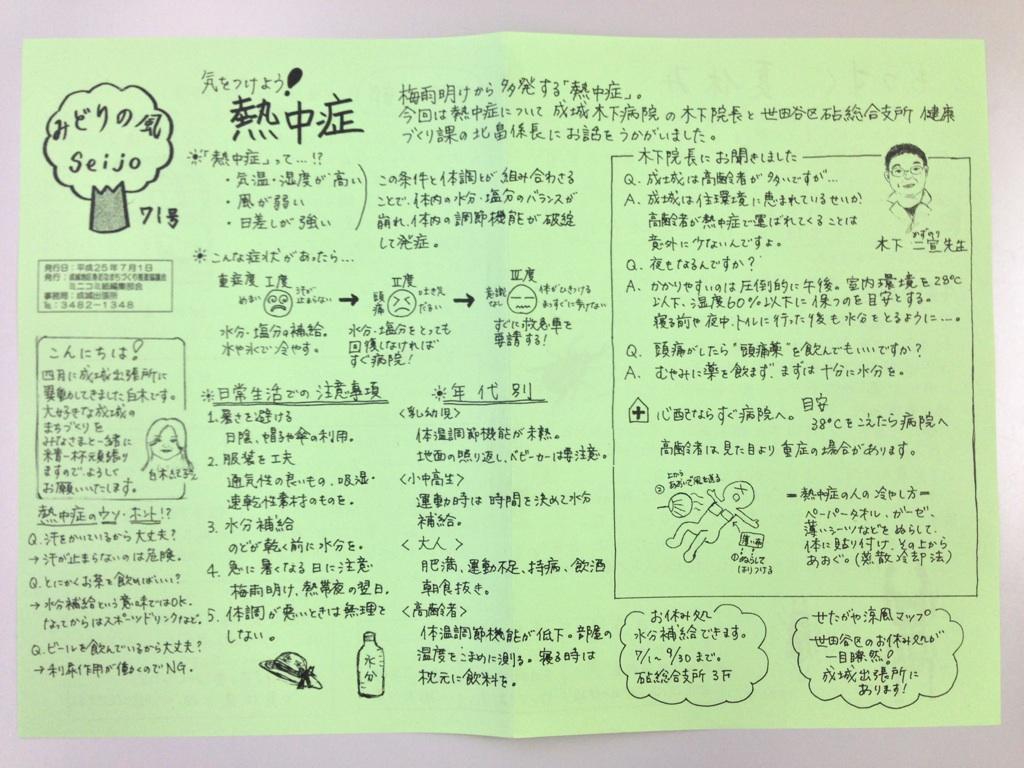 みどりの風
Seijo
71号
発行日：平成25年7月1日
発行：成城地区身近なまちづくり推進協議会
ミニコミ紙編集部会
事務局：成城出張所
℡：3482－1348
こんにちは!
四月に成城出張所に
異動してきました白木です。
大好きな成城の
まちづくりを
みなさまと一緒に
精一杯頑張り
ますのでよろしく
お願いいたします。
熱中症のウソ・ホント!?
Q.汗をかいているから大丈夫?
→汗が止まらないのは危険。
Q.とにかくお茶を飲めばいい?
→水分補給という意味ではOK.
なってからはスポーツドリンクなど。
Q.ビールを飲んでいるから大丈夫?
→利尿作用が働くのでNG.
気をつけよう!
熱中症
梅雨明けから多発する「熱中症」。
今回は熱中症について成城木下病院の木下院長と世田谷区砧総合支所健康
づくり課の北畠係長にお話をうかがいました。
☀「熱中症」って…!?
・気温・湿度が高い
・風が弱い
・日差しが強い
この条件と体調とが組み合わさる
ことで、体内の水分・塩分のバランスが
崩れ、体内の調節機能が破綻
して発症。
☀こんな症状があったら…
重症度 Ⅰ度
めまい
汗が
止まらない
水分・塩分の補給。
水や氷で冷やす。
Ⅱ度
頭痛
吐き気
だるい
水分・塩分をとっても
回復しなければ
すぐ病院!
Ⅲ度
意識なし
体がひきつける
まっすぐに歩けない
すぐに救急車を
要請する!
☀日常生活での注意事項
1.暑さを避ける
日陰、帽子や傘の利用。
2.服装を工夫
通気性の良いもの、吸湿・
速乾性素材のものを。
3.水分補給
のどが乾く前に水分を。
4.急に暑くなる日に注意
梅雨明け、熱帯夜の翌日。
5.体調が悪いときは無理を
しない。
水分
☀年代別
<乳幼児>
体温調節機能が未熟。
地面の照り返し、ベビーカーは要注意。
<小中高生>
運動時は時間を決めて水分
補給。
<大人>
肥満、運動不足、持病、飲酒
朝食抜き。
<高齢者>
体温調節機能が低下。部屋の
温度をこまめに測る。寝る時は
枕元に飲料を。
木下院長にお聞きしました
Q.成城は高齢者が多いですが…
A.成城は住環境に恵まれているせいか
高齢者が熱中症で運ばれてくることは
意外に少ないんですよ。
かずのり
木下 二宣先生
Q.夜もなるんですか?
A.かかりやすいのは圧倒的に午後。室内環境を28℃
以下、湿度60%以下に保つのを目安とする。
寝る前や夜中、トイレに行った後も水分をとるように…。
Q.頭痛がしたら"頭痛薬"を飲んでもいいですか?
A.むやみに薬を飲まず、まずは十分に水分を。
心配ならすぐ病院へ。
目安
38℃をこえたら病院へ
高齢者は見た目より重症の場合があります。
②上から
あおいで風を送る
薄い布
①ぬらして
はりつける
=熱中症の人の冷やし方=
ペーパータオル、ガーゼ、
薄いシーツなどをぬらして、
体に貼り付け、その上から
あおぐ。(蒸散冷却法)
お休み処
水分補給できます。
7/1~9/30まで。
砧総合支所3F
せたがや涼風マップ
世田谷区のお休み処が
一目瞭然!
成城出張所に
あります!